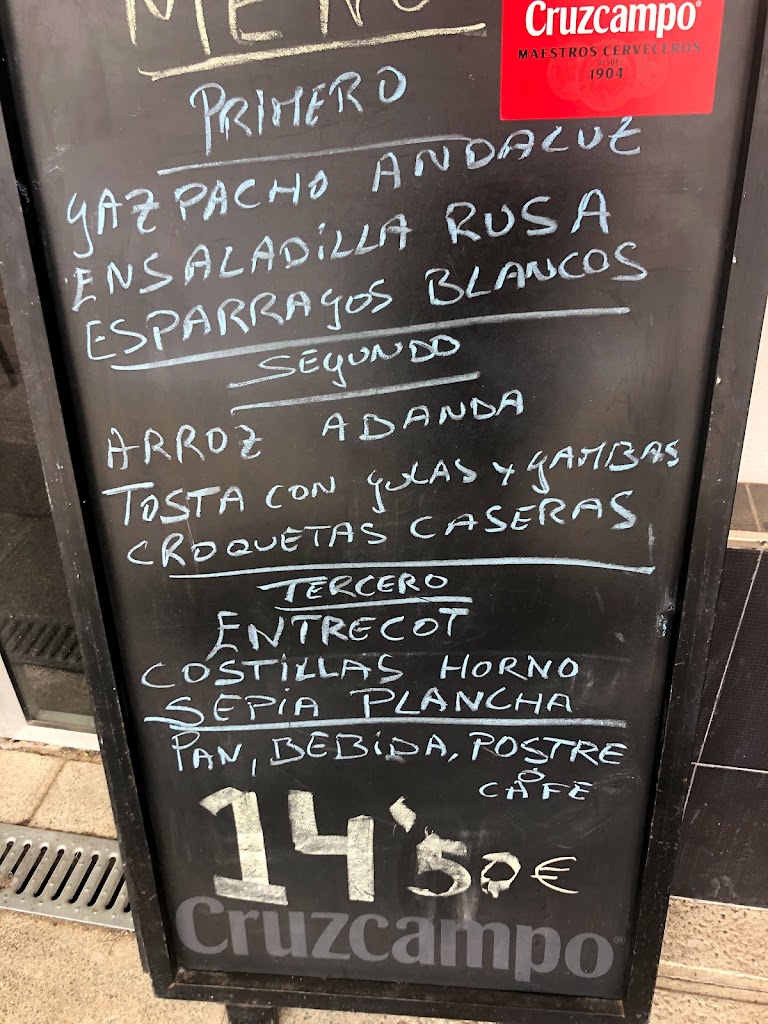 MENÚ
Cruzcampo
MAESTROS CERVECEROS
DESDE
1904
PRIMERO
GAZPACHO ANDALUZ
ENSALADILLA RUSA
ESPARRAGOS BLANCOS
SEGUNDO
ARROZ ABANDA
TOSTA CON GULAS Y GAMBAS
CROQUETAS CASERAS
TERCERO
ENTRECOT
COSTILLAS HORNO
SEPIA PLANCHA
PAN, BEBIDA, POSTRE
O
CAFE
14'50€
Cruzcampo